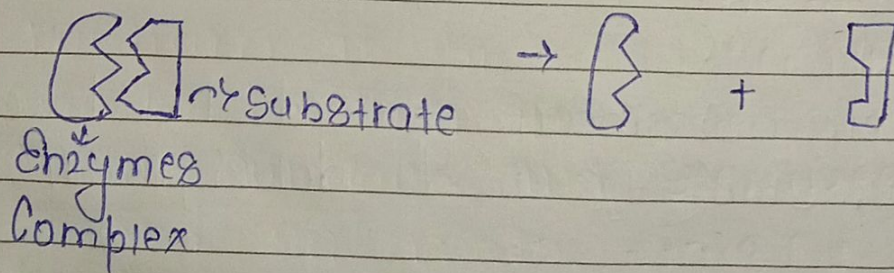 → substrate → +
Enzymes
Complex